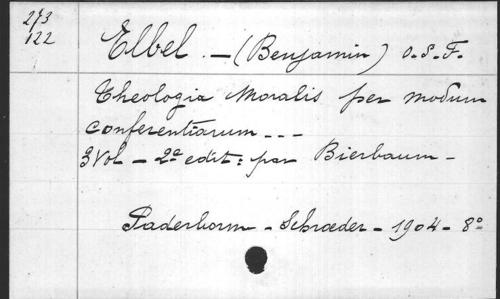 273
122
Elbel. - (Benjamin) O.S.F.
Theologia Moralis per modum
conferentiarum - - -
3 Vol - 2ª edit: par Bierbaum -
Paderborn - Schroeder - 1904 - 8º